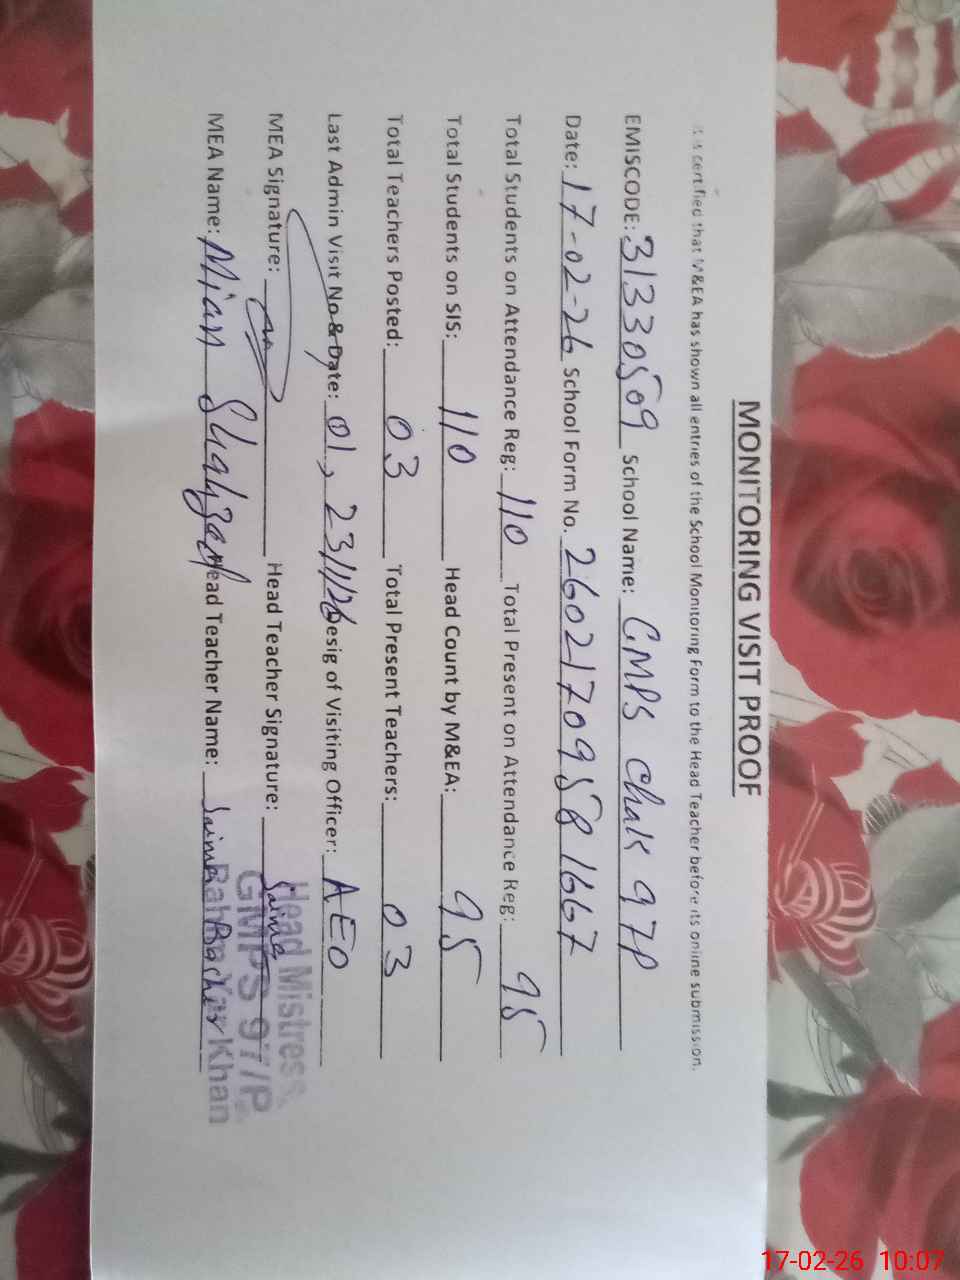 MONITORING VISIT PROOF
It is certified that M&EA has shown all entries of the School Monitoring Form to the Head Teacher before its online submission.
EMISCODE: 31330509 School Name: GMPS Chak 97P
Date: 17-02-26 School Form No. 26021709581667
Total Students on Attendance Reg: 110 Total Present on Attendance Reg: 95
Total Students on SIS: 110 Head Count by M&EA: 95
Total Teachers Posted: 03 Total Present Teachers: 03
Last Admin Visit No & Date: 01, 23/1/26 Desig of Visiting Officer: AEO
MEA Signature: Head Teacher Signature: Saima
MEA Name: Mian Shahzad Head Teacher Name: Saima Bashir
Head Mistress
GMPS 97/P
Rahim Yar Khan
17-02-26 10:07